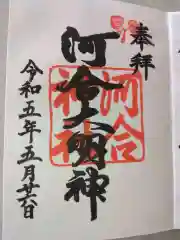 奉拝
河合大明神
河合神社
令和五年五月廿六日